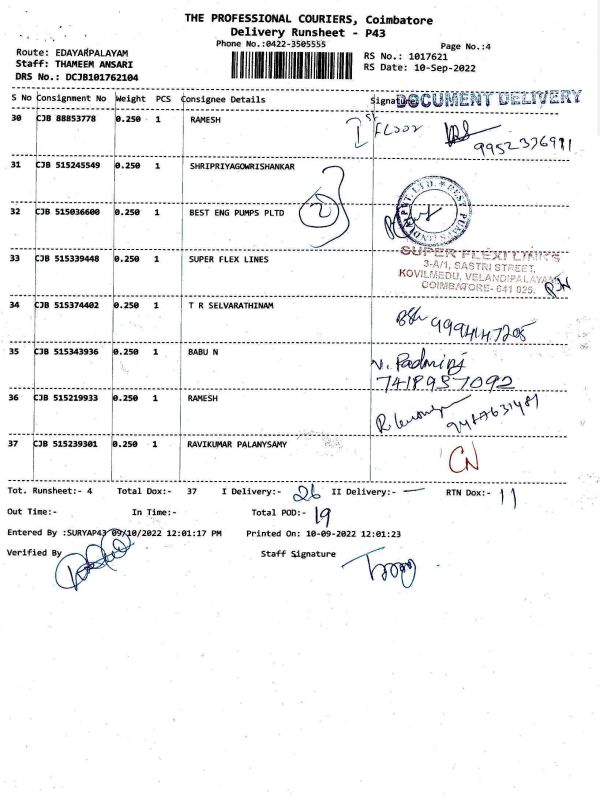 THE PROFESSIONAL COURIERS, Coimbatore
Delivery Runsheet - P43
Phone No.:0422-3505555
Page No.:4
Route: EDAYARPALAYAM
RS No.: 1017621
Staff: THAMEEM ANSARI
RS Date: 10-Sep-2022
DRS No.: DCJB101762104
S No Consignment No Weight PCS Consignee Details Signature
DOCUMENT DELIVERY
30 CJB 88853778 0.250 1 RAMESH
1st FLOOR
31 CJB 515245549 0.250 1 SHRIPRIYAGOWRISHANKAR
32 CJB 515036600 0.250 1 BEST ENG PUMPS PLTD
2
33 CJB 515339448 0.250 1 SUPER FLEX LINES
SUPER FLEXI LINKS
3-A/1, SASTRI STREET,
KOVILMEDU, VELANDIPALAYAM
COIMBATORE- 641 025.
34 CJB 515374402 0.250 1 T R SELVARATHINAM
35 CJB 515343936 0.250 1 BABU N
V. Padmini
7418957092
36 CJB 515219933 0.250 1 RAMESH
37 CJB 515239301 0.250 1 RAVIKUMAR PALANYSAMY
CN
Tot. Runsheet:- 4 Total Dox:- 37 I Delivery:- 26 II Delivery:- — RTN Dox:- 11
Out Time:- In Time:- Total POD:- 19
Entered By :SURYAP43 09/10/2022 12:01:17 PM Printed On: 10-09-2022 12:01:23
Verified By Staff Signature